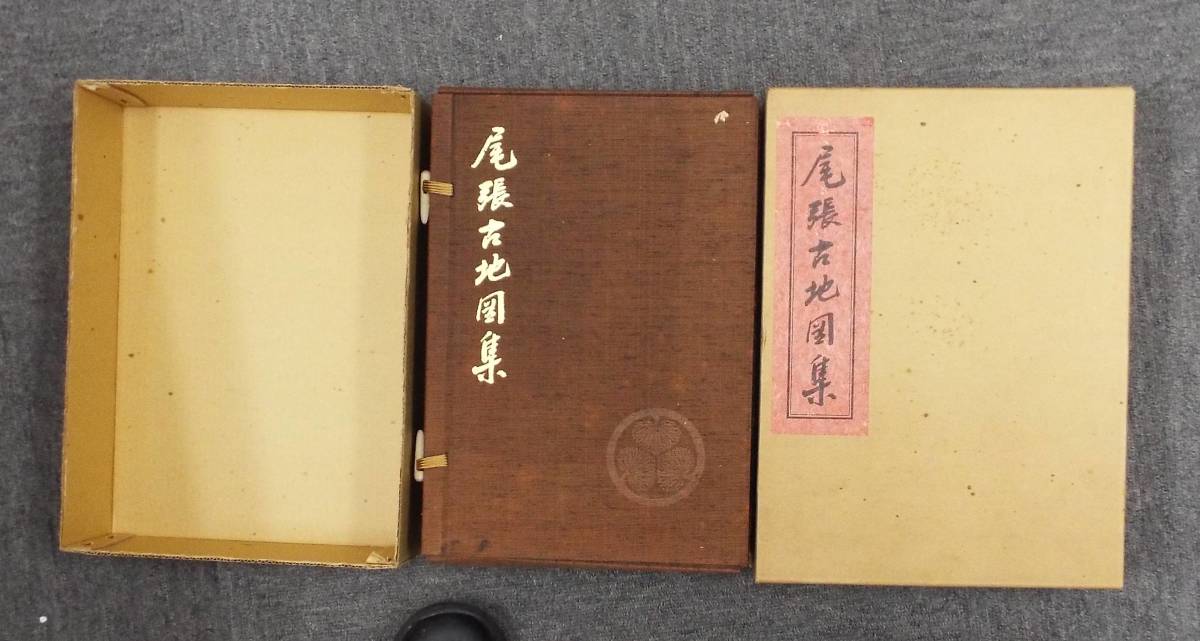 尾張古地図集
尾張古地図集